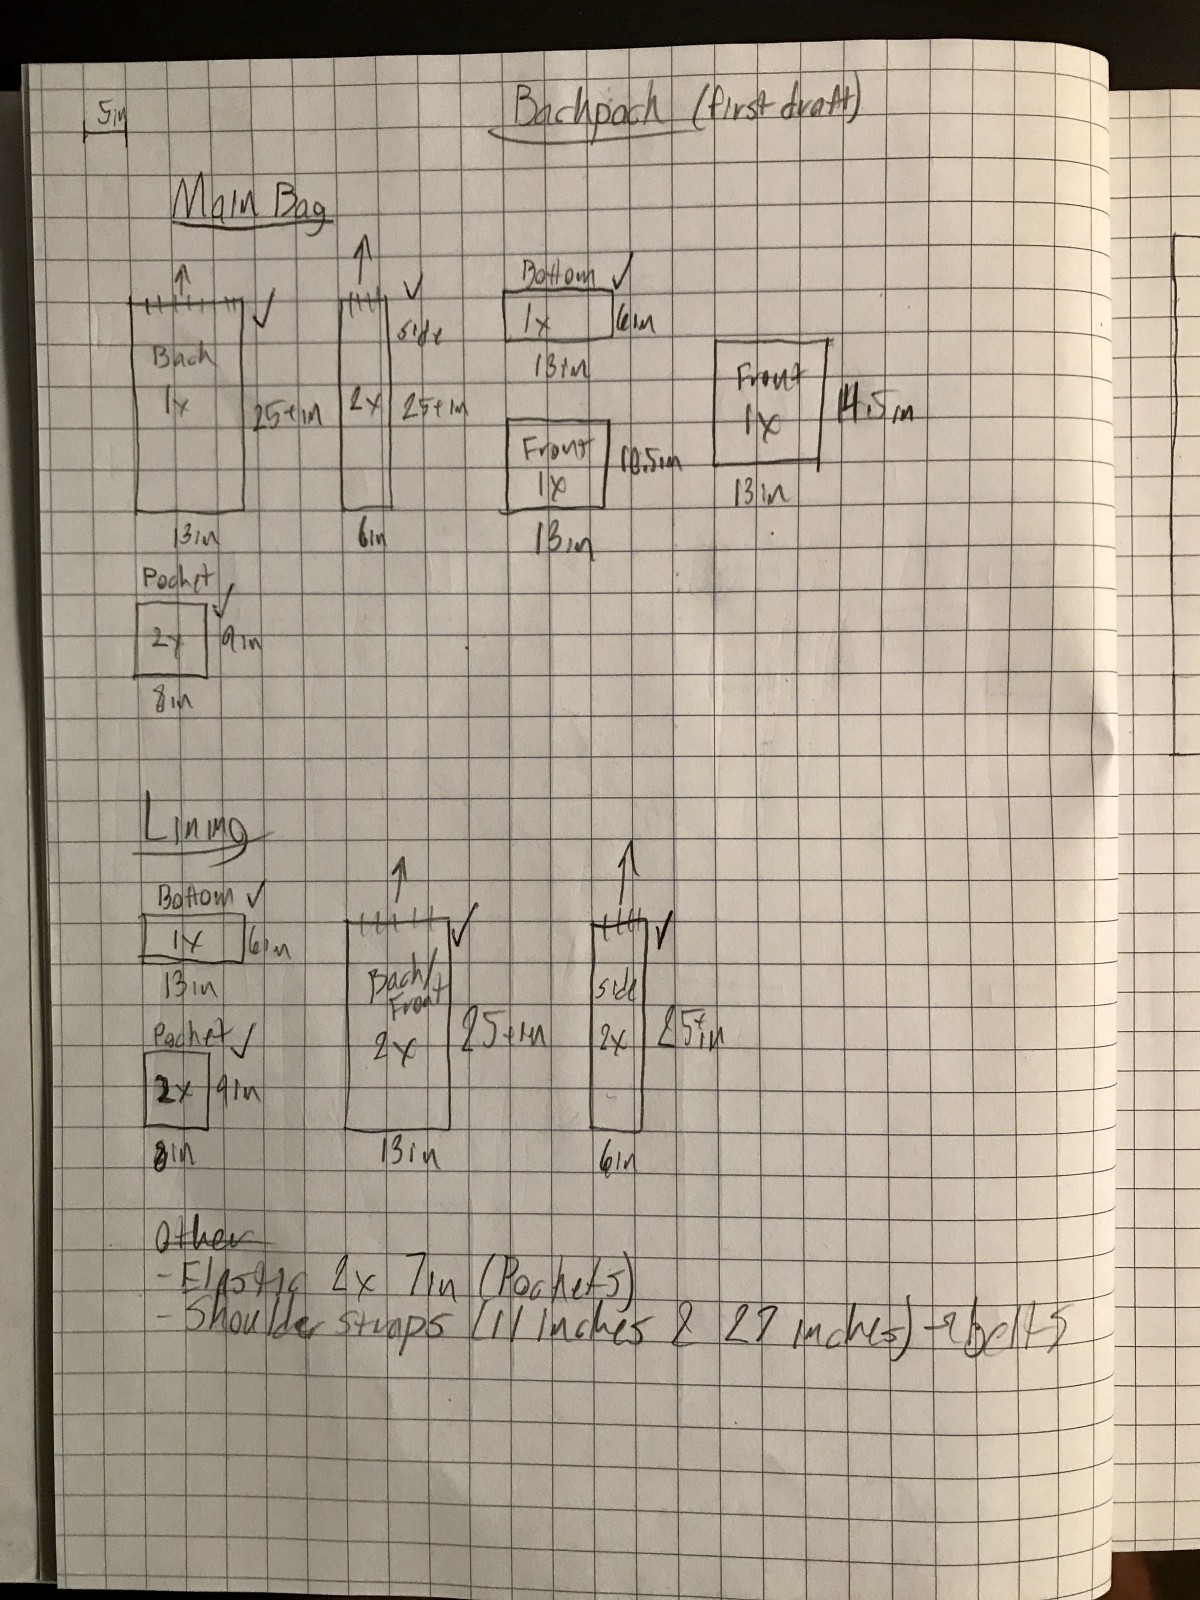 5in
Backpack (first draft)
Main Bag
Back
1x
25+in
13in
side
2x
25+in
6in
Bottom ✓
1x
6in
13in
Front
1x
10.5in
13in
Front
1x
14.5in
13in
Pocket
2x
9in
8in
Lining
Bottom ✓
1x
6in
13in
Pocket ✓
2x
9in
8in
Back/
Front
2x
25+in
13in
side
2x
25+in
6in
Other
- Elastic 2x 7in (Pockets)
- Shoulder straps (11 inches & 27 inches) → belts